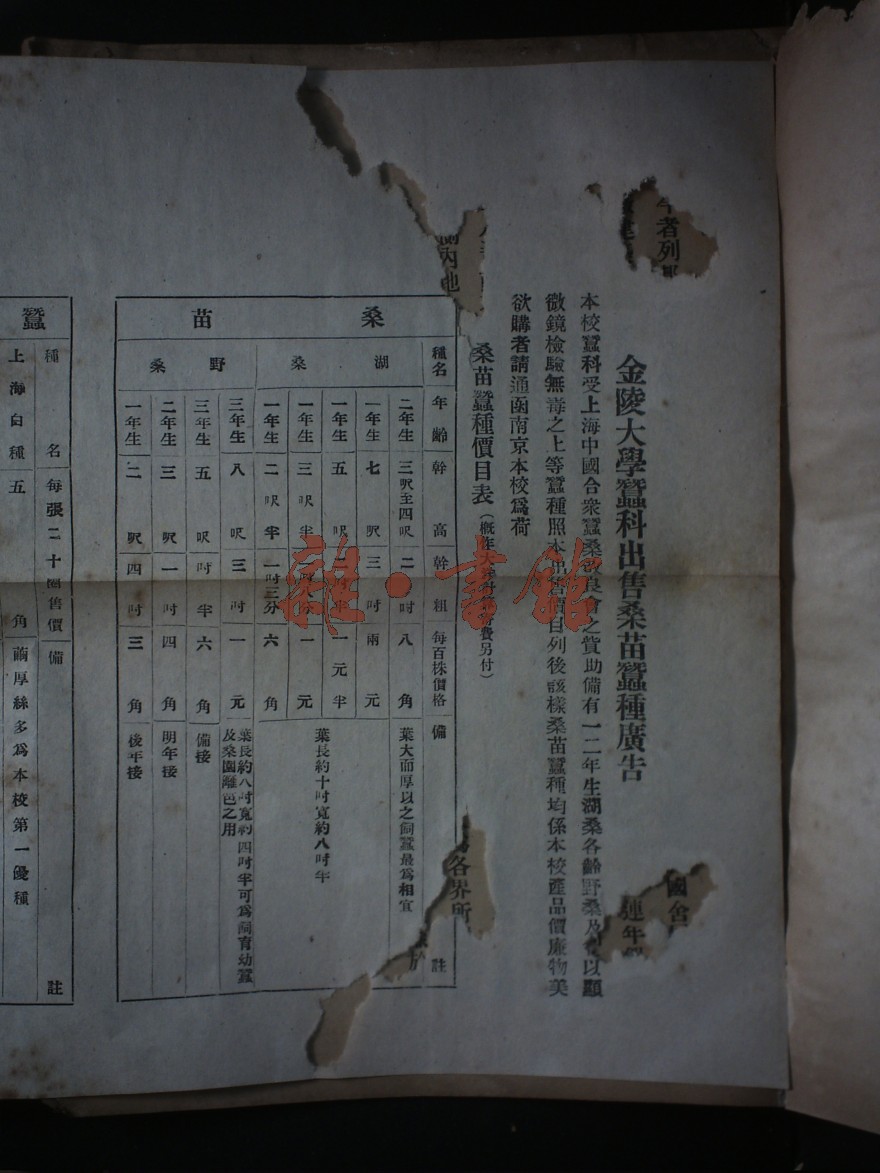 金陵大學蠶科出售桑苗蠶種廣告
本校蠶科受上海中國合衆蠶桑改良會之贊助備有一二年生湖桑各齡野桑及 以顯
微鏡檢驗無毒之上等蠶種照本出售價目列後該樣桑苗蠶種均係本校產品價廉物美
欲購者請通函南京本校爲荷
桑苗蠶種價目表（概作大洋 費另付）
桑苗
種名 年齡 幹高 幹粗 每百株價格 備註
湖桑
二年生 三呎至四呎 二吋 八角 葉大而厚以之飼蠶最爲相宜
一年生 七呎 三吋 兩元
一年生 五呎 二吋半 一元半 葉長約十吋寬約八吋半
一年生 三呎半 一元
一年生 二呎半 一吋三分 六角
野桑
三年生 八呎 三吋 一元 葉長約八吋寬約四吋半可爲飼育幼蠶及桑園離芭之用
三年生 五呎 吋半 六角 備接
二年生 三呎 一吋 四角 明年接
一年生 二呎 四吋 三角 後年接
蠶
種名 每張二十圈售價 備註
上海白種 五角 繭厚絲多爲本校第一優種
者列
內地
各界所
國合
連年
雜·書館